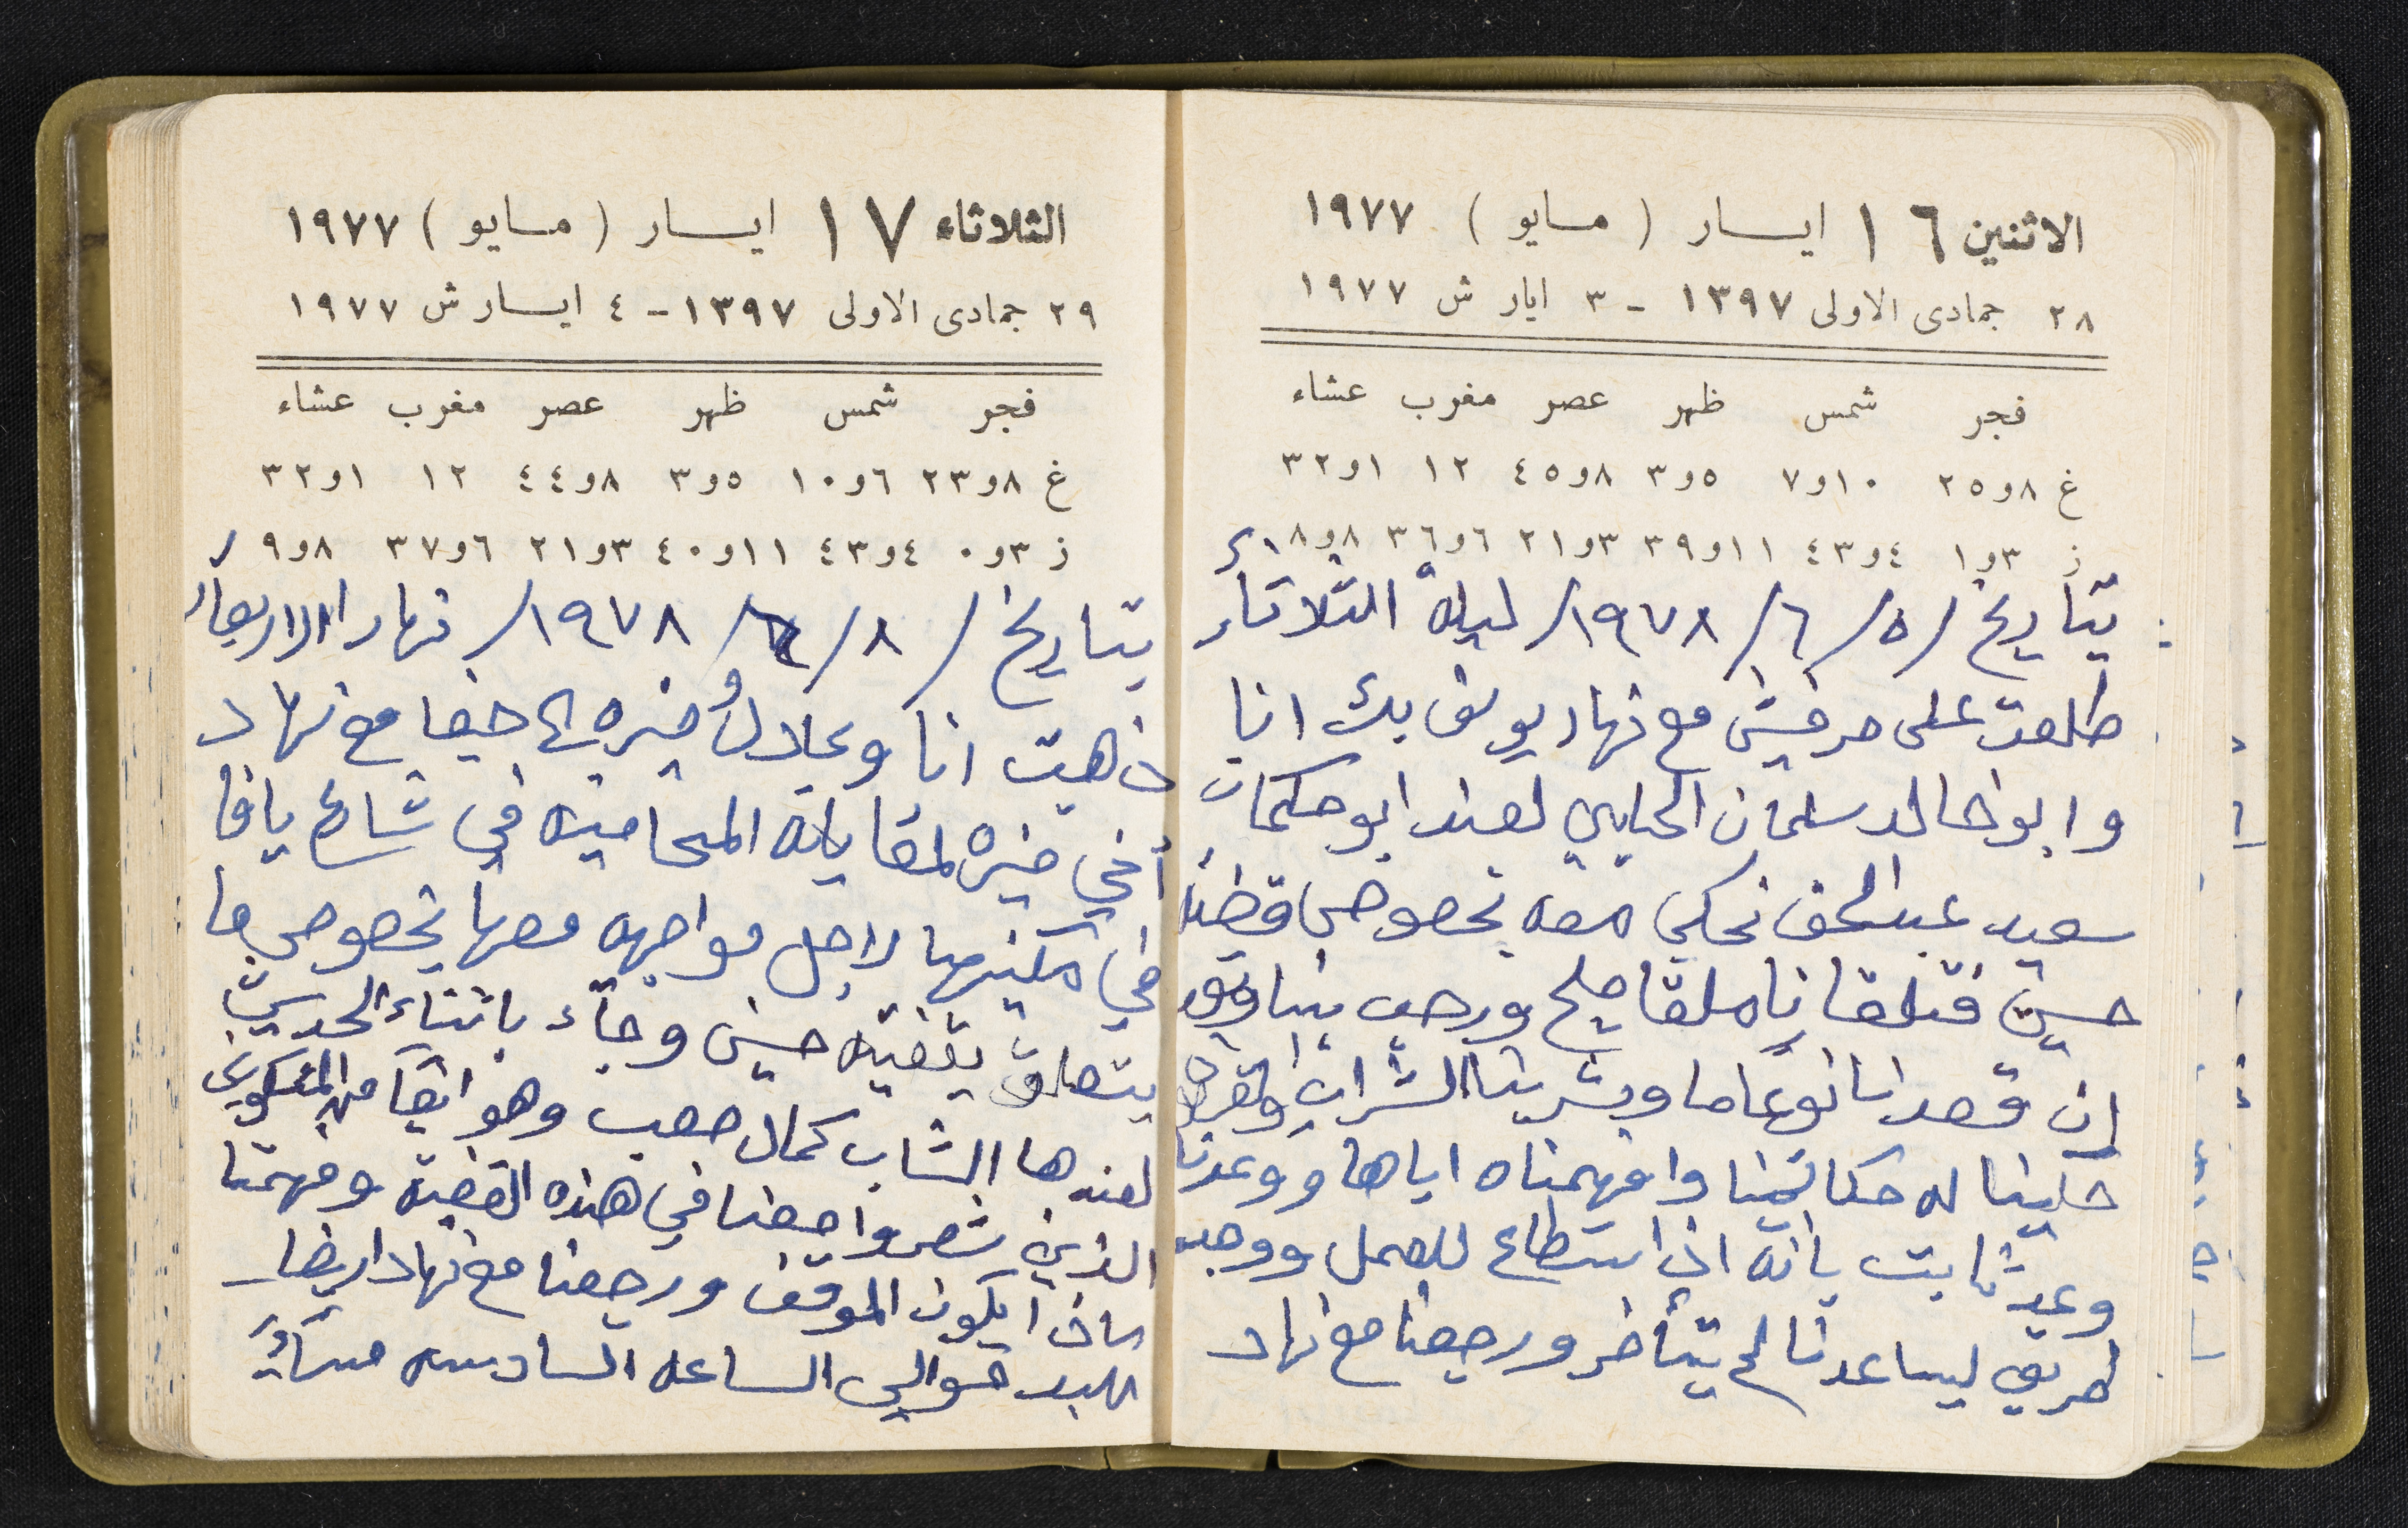 الاثنين ١٦ ايسار ( مسايو ) ١٩٧٧
٢٨ جمادى الاولى ١٣٩٧ - ٣ ايار ش ١٩٧٧
فجر شمس ظهر عصر مغرب عشاء
غ ٨و٢٥ ١٠و٧ ٥و٣ ٨و٤٥ ١٢ ١و٣٢
ز ٣و١ ٤و٤٣ ١١و٣٩ ٣و٢١ ٦و٣٦ ٨و٨
بتاريخ /٥/٦/١٩٧٨/ ليلة الثلاثاء
طلعت على حرفيش مع نهاد يوسف بك انا
وابو خالد سلمان الحلبي لعند ابو حكمات
سعيد عبد الحق نحكي معه بخصوص قضية
حسين فتلقانا ملقا مليح ورحب بنا وبعد
ان قعدنا نوعاما وشربنا الشراب والقهوه
حكينا له حكايتنا وافهمناه اياها ووعدنا
وعد ثابت بانه اذا استطاع للعمل ووجد
طريق ليساعدنا لم يتأخر ورجعنا مع نهاد
الثلاثاء ١٧ ايسار ( مسايو ) ١٩٧٧
٢٩ جمادى الاولى ١٣٩٧ - ٤ ايسار ش ١٩٧٧
فجر شمس ظهر عصر مغرب عشاء
غ ٨و٢٣ ٦و١٠ ٥و٣ ٨و٤٤ ١٢ ١و٣٢
ز ٣و٠ ٤و٤٣ ١١و٤٠ ٣و٢١ ٦و٣٧ ٨و٩
بتاريخ /٨/٦/١٩٧٨/ نهار الاربعاء
ذهبت انا وعادل ومنيره الى حيفا مع نهاد
أخي منيره لمقابلة المحاميه في شارع يافا
في مكتبها لاجل مواجهه معها بخصوص ما
يتعلق بقضيه حسين وجاء باثناء الحديث
لعندها الشاب كمال صعب وهو ايضا من
الذين شعروا معنا في هذه القضية وفهمنا
ماذا يكون الموقف ورجعنا مع نهاد ايضا
للبلد حوالي الساعه السادسه مساءً